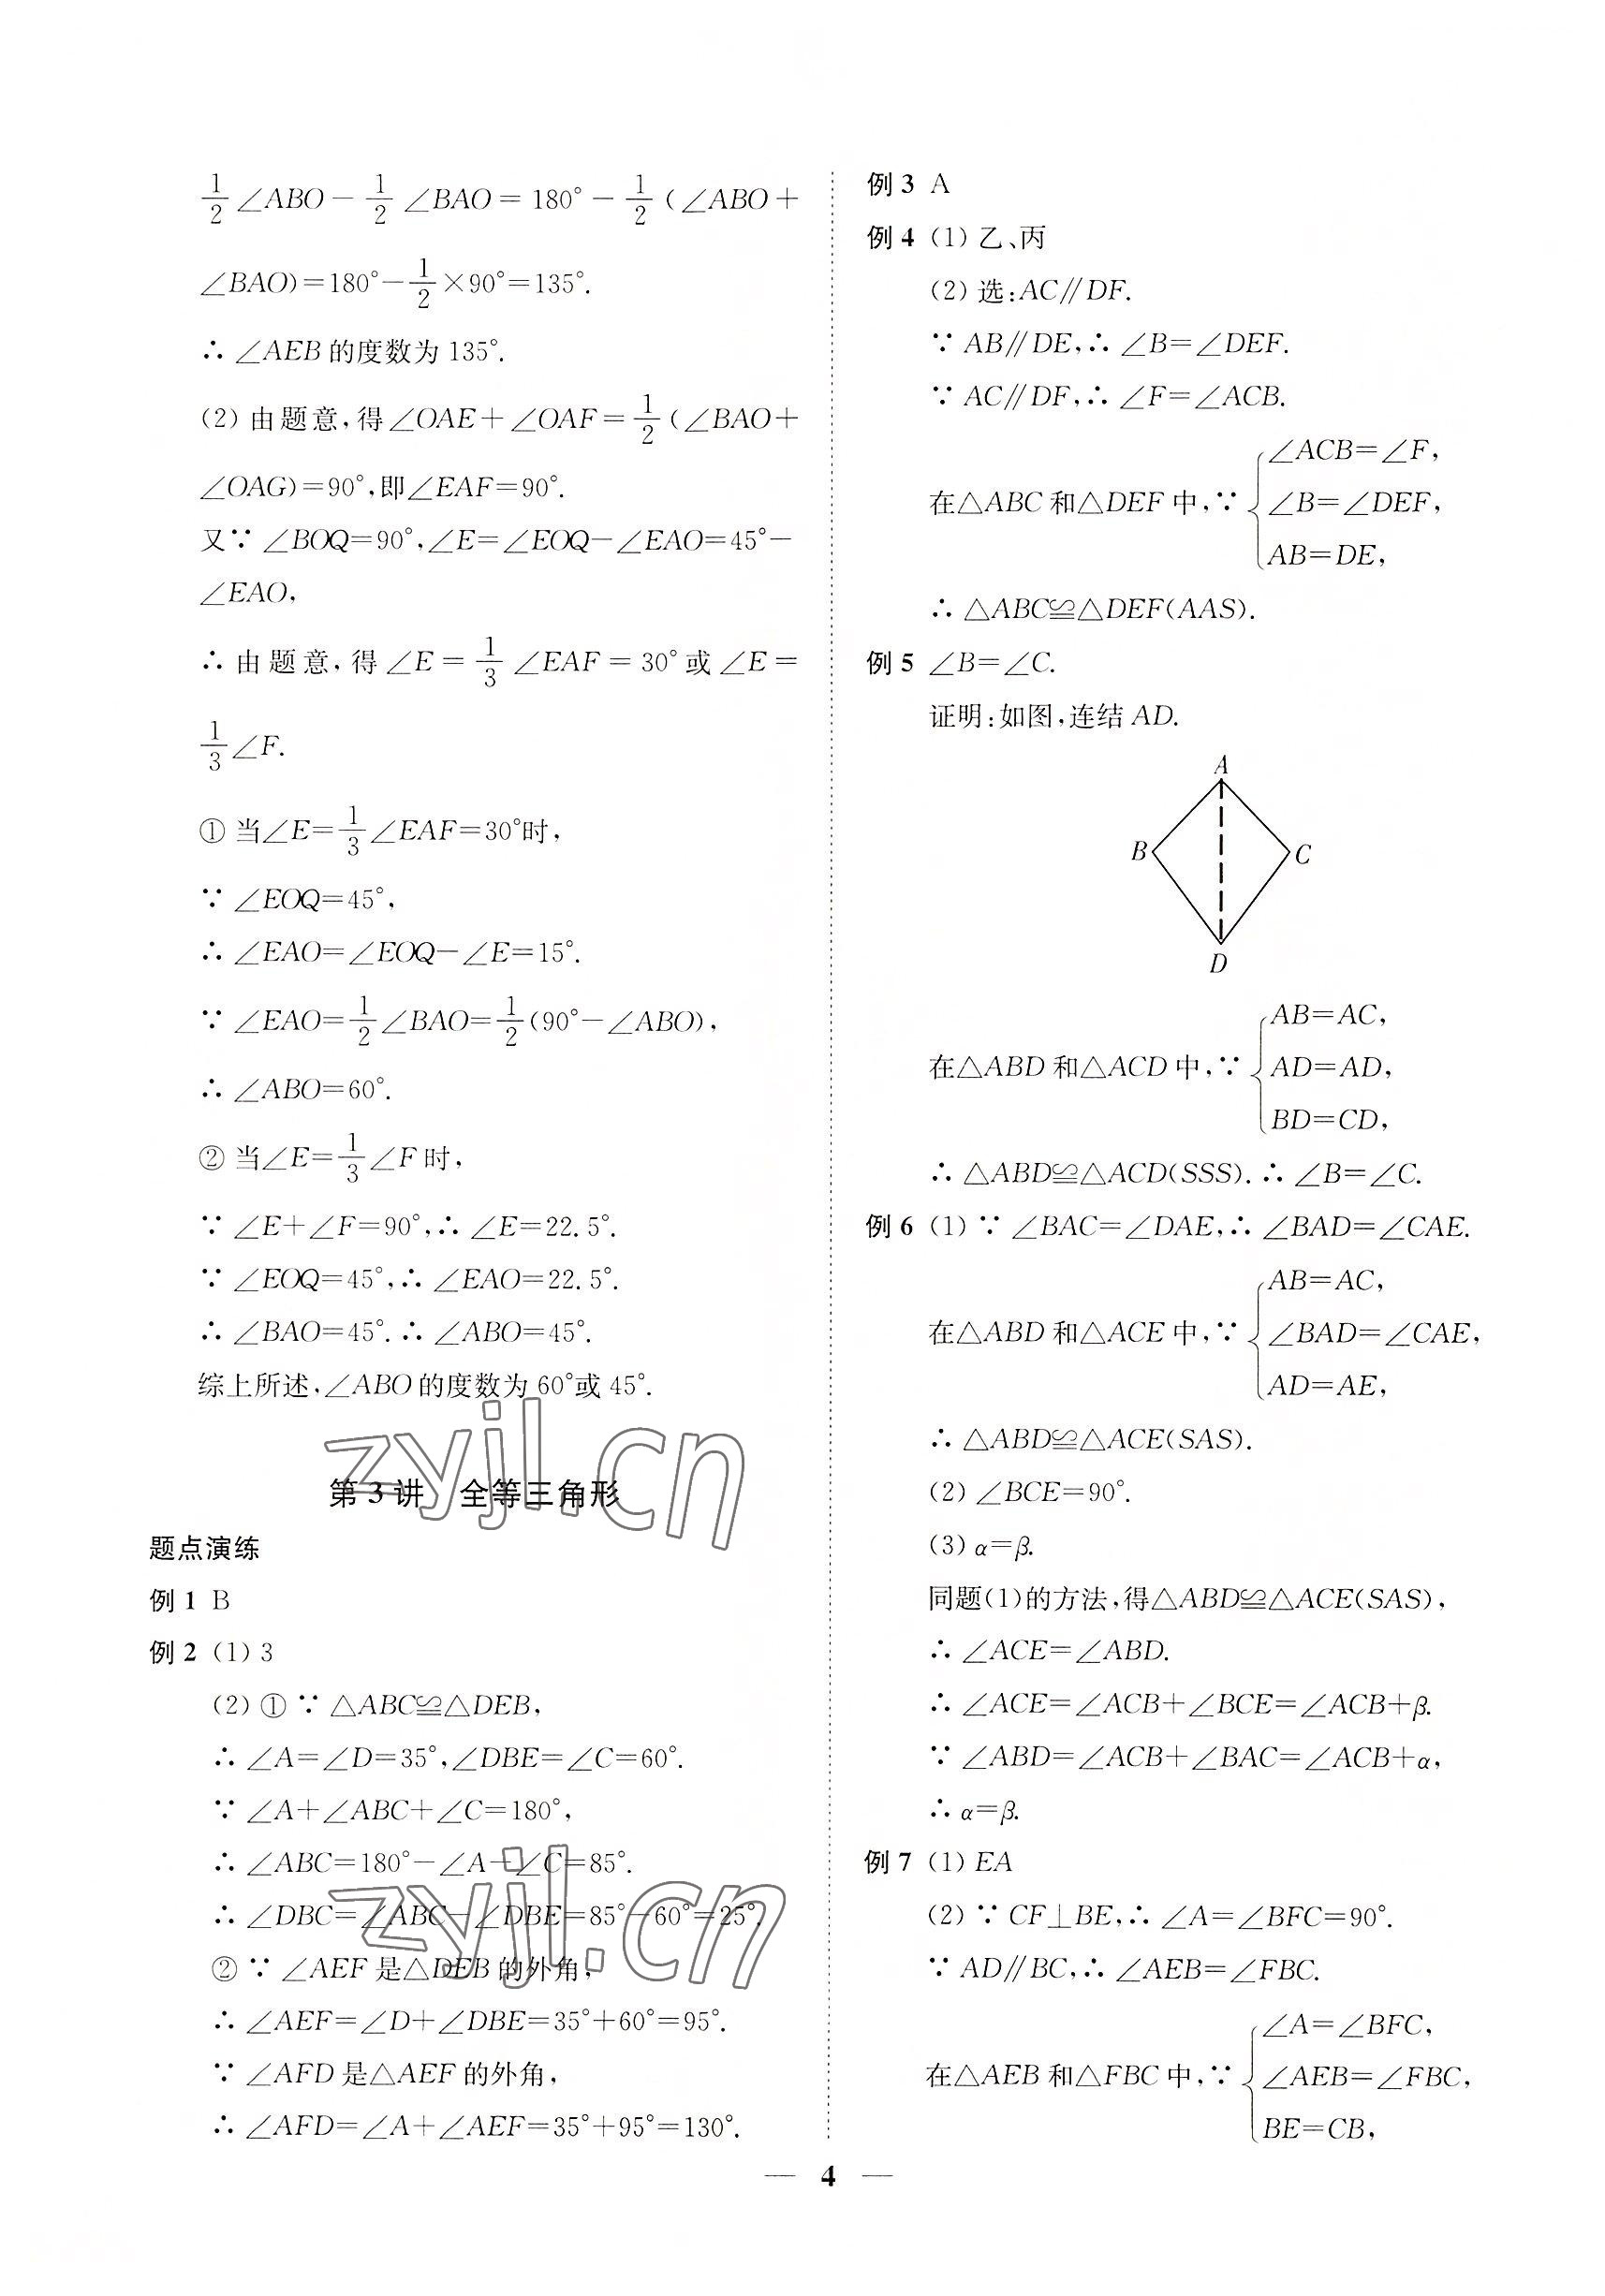 1/2∠ABO－1/2∠BAO＝180°－1/2(∠ABO＋
∠BAO)＝180°－1/2×90°＝135°.
∴ ∠AEB 的度数为 135°.
(2) 由题意,得∠OAE＋∠OAF＝1/2(∠BAO＋
∠OAG)＝90°,即∠EAF＝90°.
又∵ ∠BOQ＝90°,∠E＝∠EOQ－∠EAO＝45°－
∠EAO,
∴ 由题意,得∠E＝1/3∠EAF＝30°或∠E＝
1/3∠F.
① 当∠E＝1/3∠EAF＝30°时,
∵ ∠EOQ＝45°,
∴ ∠EAO＝∠EOQ－∠E＝15°.
∵ ∠EAO＝1/2∠BAO＝1/2(90°－∠ABO),
∴ ∠ABO＝60°.
② 当∠E＝1/3∠F 时,
∵ ∠E＋∠F＝90°,∴ ∠E＝22.5°.
∵ ∠EOQ＝45°,∴ ∠EAO＝22.5°.
∴ ∠BAO＝45°.∴ ∠ABO＝45°.
综上所述,∠ABO 的度数为 60°或 45°.
zyjl.cn
第 3 讲　全等三角形
题点演练
例 1 B
例 2 (1) 3
(2) ① ∵ △ABC≌△DEB,
∴ ∠A＝∠D＝35°,∠DBE＝∠C＝60°.
∵ ∠A＋∠ABC＋∠C＝180°,
∴ ∠ABC＝180°－∠A－∠C＝85°.
∴ ∠DBC＝∠ABC－∠DBE＝85°－60°＝25°.
zyjl.cn
② ∵ ∠AEF 是△DEB 的外角,
∴ ∠AEF＝∠D＋∠DBE＝35°＋60°＝95°.
∵ ∠AFD 是△AEF 的外角,
∴ ∠AFD＝∠A＋∠AEF＝35°＋95°＝130°.
例 3 A
例 4 (1) 乙、丙
(2) 选:AC∥DF.
∵ AB∥DE,∴ ∠B＝∠DEF.
∵ AC∥DF,∴ ∠F＝∠ACB.
∠ACB＝∠F,
在△ABC 和△DEF 中,∵ { ∠B＝∠DEF,
AB＝DE,
∴ △ABC≌△DEF(AAS).
例 5 ∠B＝∠C.
证明:如图,连结 AD.
A
B
C
D
AB＝AC,
在△ABD 和△ACD 中,∵ { AD＝AD,
BD＝CD,
∴ △ABD≌△ACD(SSS).∴ ∠B＝∠C.
例 6 (1) ∵ ∠BAC＝∠DAE,∴ ∠BAD＝∠CAE.
AB＝AC,
在△ABD 和△ACE 中,∵ { ∠BAD＝∠CAE,
AD＝AE,
∴ △ABD≌△ACE(SAS).
(2) ∠BCE＝90°.
(3) α＝β.
同题(1)的方法,得△ABD≌△ACE(SAS),
∴ ∠ACE＝∠ABD.
∴ ∠ACE＝∠ACB＋∠BCE＝∠ACB＋β.
∵ ∠ABD＝∠ACB＋∠BAC＝∠ACB＋α,
∴ α＝β.
例 7 (1) EA
(2) ∵ CF⊥BE,∴ ∠A＝∠BFC＝90°.
∵ AD∥BC,∴ ∠AEB＝∠FBC.
∠A＝∠BFC,
在△AEB 和△FBC 中,∵ { ∠AEB＝∠FBC,
BE＝CB,
— 4 —